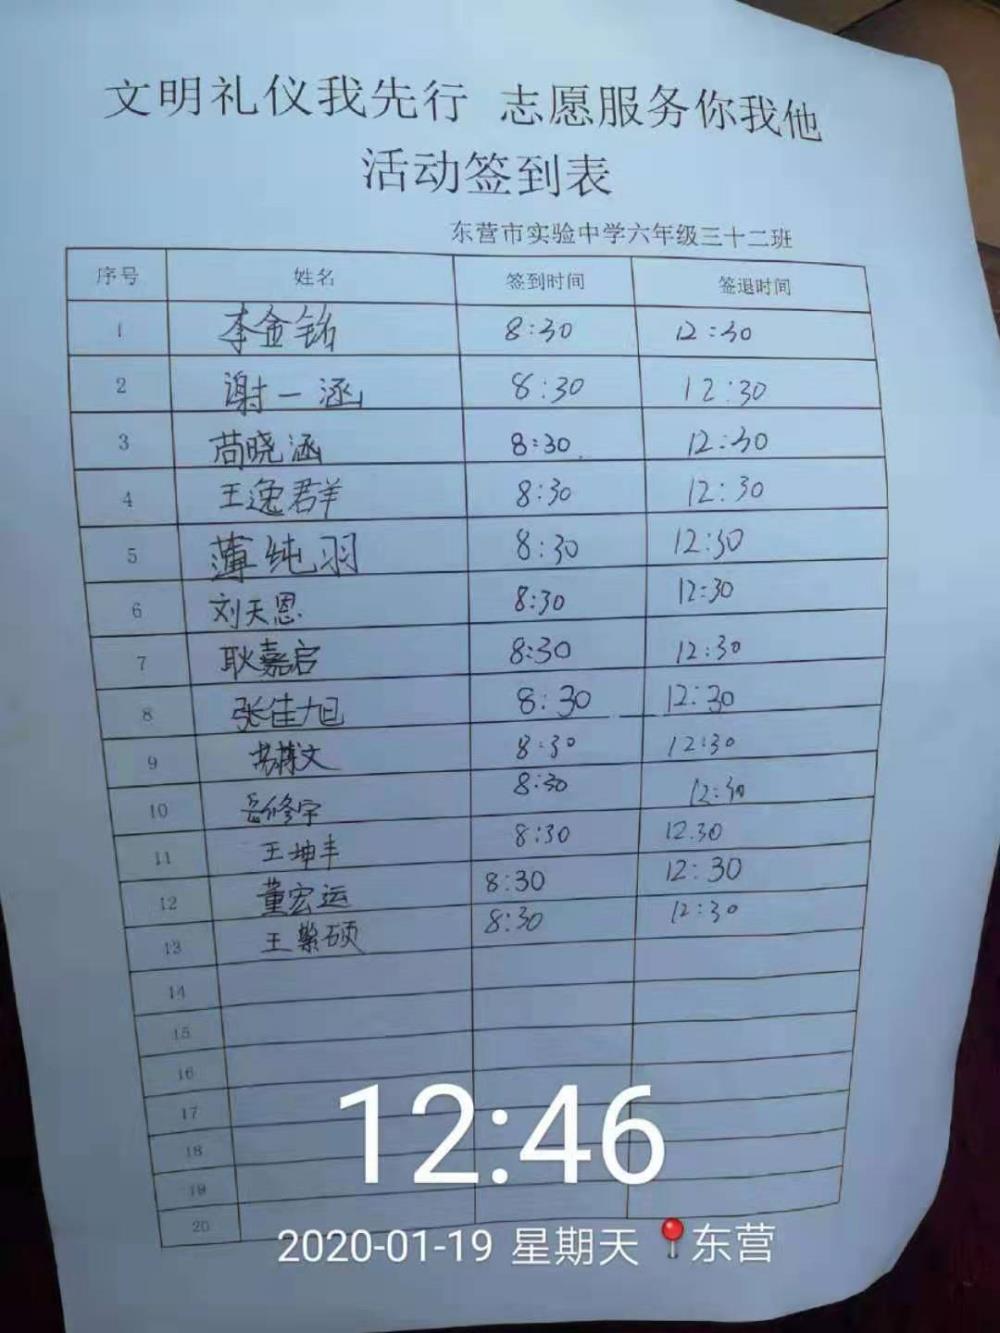 文明礼仪我先行 志愿服务你我他
活动签到表
东营市实验中学六年级三十二班
序号 姓名 签到时间 签退时间
1 李金铭 8:30 12:30
2 谢一涵 8:30 12:30
3 苘晓涵 8:30 12:30
4 王逸群 8:30 12:30
5 薄纯羽 8:30 12:30
6 刘天恩 8:30 12:30
7 耿嘉启 8:30 12:30
8 张佳旭 8:30 12:30
9 文 8:30 12:30
10 岳修宇 8:30 12:30
11 王坤丰 8:30 12.30
12 董宏运 8:30 12:30
13 王繁硕 8:30 12:30
14
15
16
17
18
19
20
12:46
2020-01-19 星期天 东营